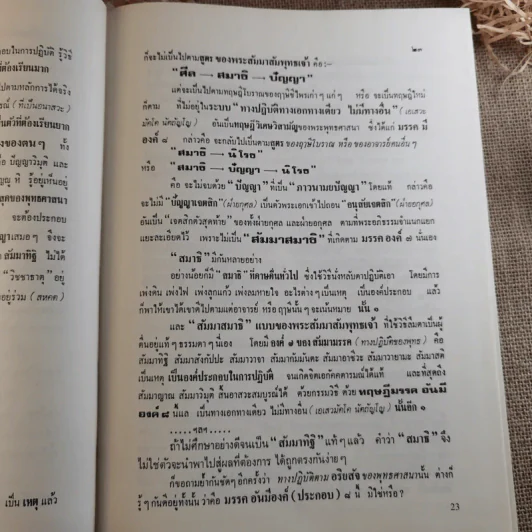 อบในการปฏิบัติ รู้วิธี
ที่ต้องเรียนมาก
ไปตามหลักการได้จริง
รณ์ (ที่เป็นอาสวะ)
นตัวที่ต้องเรียนยาก
ของตน ๆ ทั้ง
คือ ปัญญาวิมุติ และ
ญู ที่ รู้อยู่เห็นอยู่
สุดของพุทธศาสนา
จะต้องประกอบ
ญาเสมอ ๆ จึงจะ
สัมมาทิฐิ ไม่ได้
"วิชชาธาตุ" อยู่
อยู่ร่วม (สหคต)
เป็น เหตุ แล้ว
๒๓
ก็จะไม่เป็นไปตามสูตร ของพระสัมมาสัมพุทธเจ้า คือ:-
"ศีล → สมาธิ → ปัญญา"
แต่จะเป็นไปตามทฤษฎีโบราณของฤาษีชีไพรเก่า ๆ แก่ ๆ หรือ จะเป็นทฤษฎีใหม่
ก็ตาม ที่ไม่อยู่ในระบบ "ทางปฏิบัติทางเอกทางเดียว ไม่มีทางอื่น" (เอเสวะ
มัคโค นัตถัญโญ) อันเป็นทฤษฎีวิเศษวิสามัญของพระพุทธศาสนา ซึ่งได้แก่ มรรค มี
องค์ ๘ กล่าวคือ จะกลับไปเป็นตามสูตร ของฤาษีโบราณ หรือ ของอาจารย์คนอื่น ๆ
"สมาธิ → นิโรธ"
หรือ "สมาธิ → ปัญญา → นิโรธ"
คือ จะไม่จบด้วย "ปัญญา" ที่เป็น "ภาวนามยปัญญา" โดยแท้ กล่าวคือ
จะไม่มี "ปัญญาเจตสิก" (ฝ่ายกุศล) เป็นตัวพระเอกเข้าไปถอน "อนุสัยเจตสิก" (ฝ่ายอกุศล)
อันเป็น "เจตสิกตัวสุดท้าย" ของทั้งฝ่ายกุศล และฝ่ายอกุศล ตามที่พระอภิธรรมจำแนกแยก
แยะละเอียดไว้ เพราะไม่เป็น "สัมมาสมาธิ" ที่เกิดตาม มรรค องค์ ๗ นั่นเอง
"สมาธิ" มีกันหลายอย่าง
อย่างน้อยก็มี "สมาธิ" ที่ดาษดื่นทั่วไป ซึ่งใช้วิธีนั่งหลับตาปฏิบัติเอา โดยมีการ
เพ่งดิน เพ่งไฟ เพ่งลูกแก้ว เพ่งลมหายใจ อะไรต่าง ๆ เป็นเหตุ เป็นองค์ประกอบ แล้ว
ก็พาให้เขาได้เขาดีไปตามแต่อาจารย์ หรือ ฤาษีนั้น ๆ จะเน้นหมาย นั้น ๑
และ "สัมมาสมาธิ" แบบของพระสัมมาสัมพุทธเจ้า ที่ใช้วิธีลืมตาเป็นผู้
ตื่นอยู่แท้ ๆ ธรรมดา ๆ นี่เอง โดยมี องค์ ๗ ของสัมมามรรค (ทางปฏิบัติของพุทธ) คือ
สัมมาทิฐิ สัมมาสังกัปปะ สัมมาวาจา สัมมากัมมันตะ สัมมาอาชีวะ สัมมาวายามะ สัมมาสติ
เป็นเหตุ เป็นองค์ประกอบในการปฏิบัติ จนเกิดจิตเอกัคคตารมณ์ได้แท้ และที่สุดถึง
สัมมาญาณ สัมมาวิมุติ สิ้นอาสวะสมบูรณ์ได้ ด้วยกรรมวิธี ด้วย ทฤษฎีมรรค อันมี
องค์ ๘ นี้แล เป็นทางเอกทางเดียว ไม่มีทางอื่น (เอเสวมัคโค นัตถัญโญ) นั้นอีก ๑
.....ฯลฯ.....
ถ้าไม่ศึกษาอย่างดีจนเป็น "สัมมาทิฐิ" แท้ ๆ แล้ว คำว่า "สมาธิ" จึง
ไม่ใช่ตัวจะนำพาไปสู่ผลที่ต้องการ ได้ถูกตรงกันง่าย ๆ
ก็ขอถามย้ำกันชัดๆ อีกครั้งว่า ทางปฏิบัติตาม อริยสัจ ของพุทธศาสนานั้น ต่างก็
รู้ ๆ กันดีอยู่ทั้งนั้น ว่าคือ มรรค อันมีองค์ (ประกอบ) ๘ นี้ มิใช่หรือ?
23